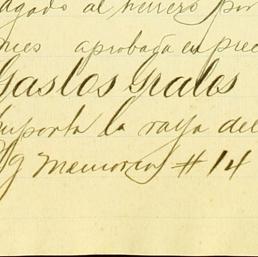 agado al herrero por
mes aprobada en prec
Gastos Grales
mporta la raya del
g memoria # 14